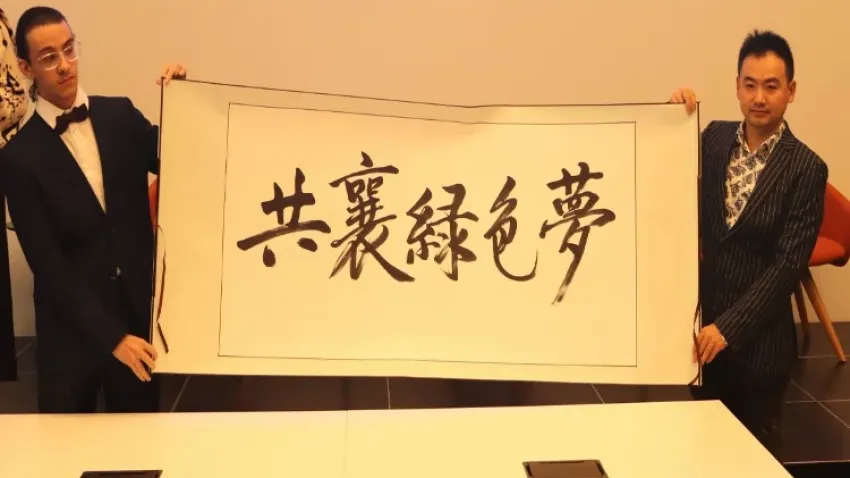 共襄綠色夢